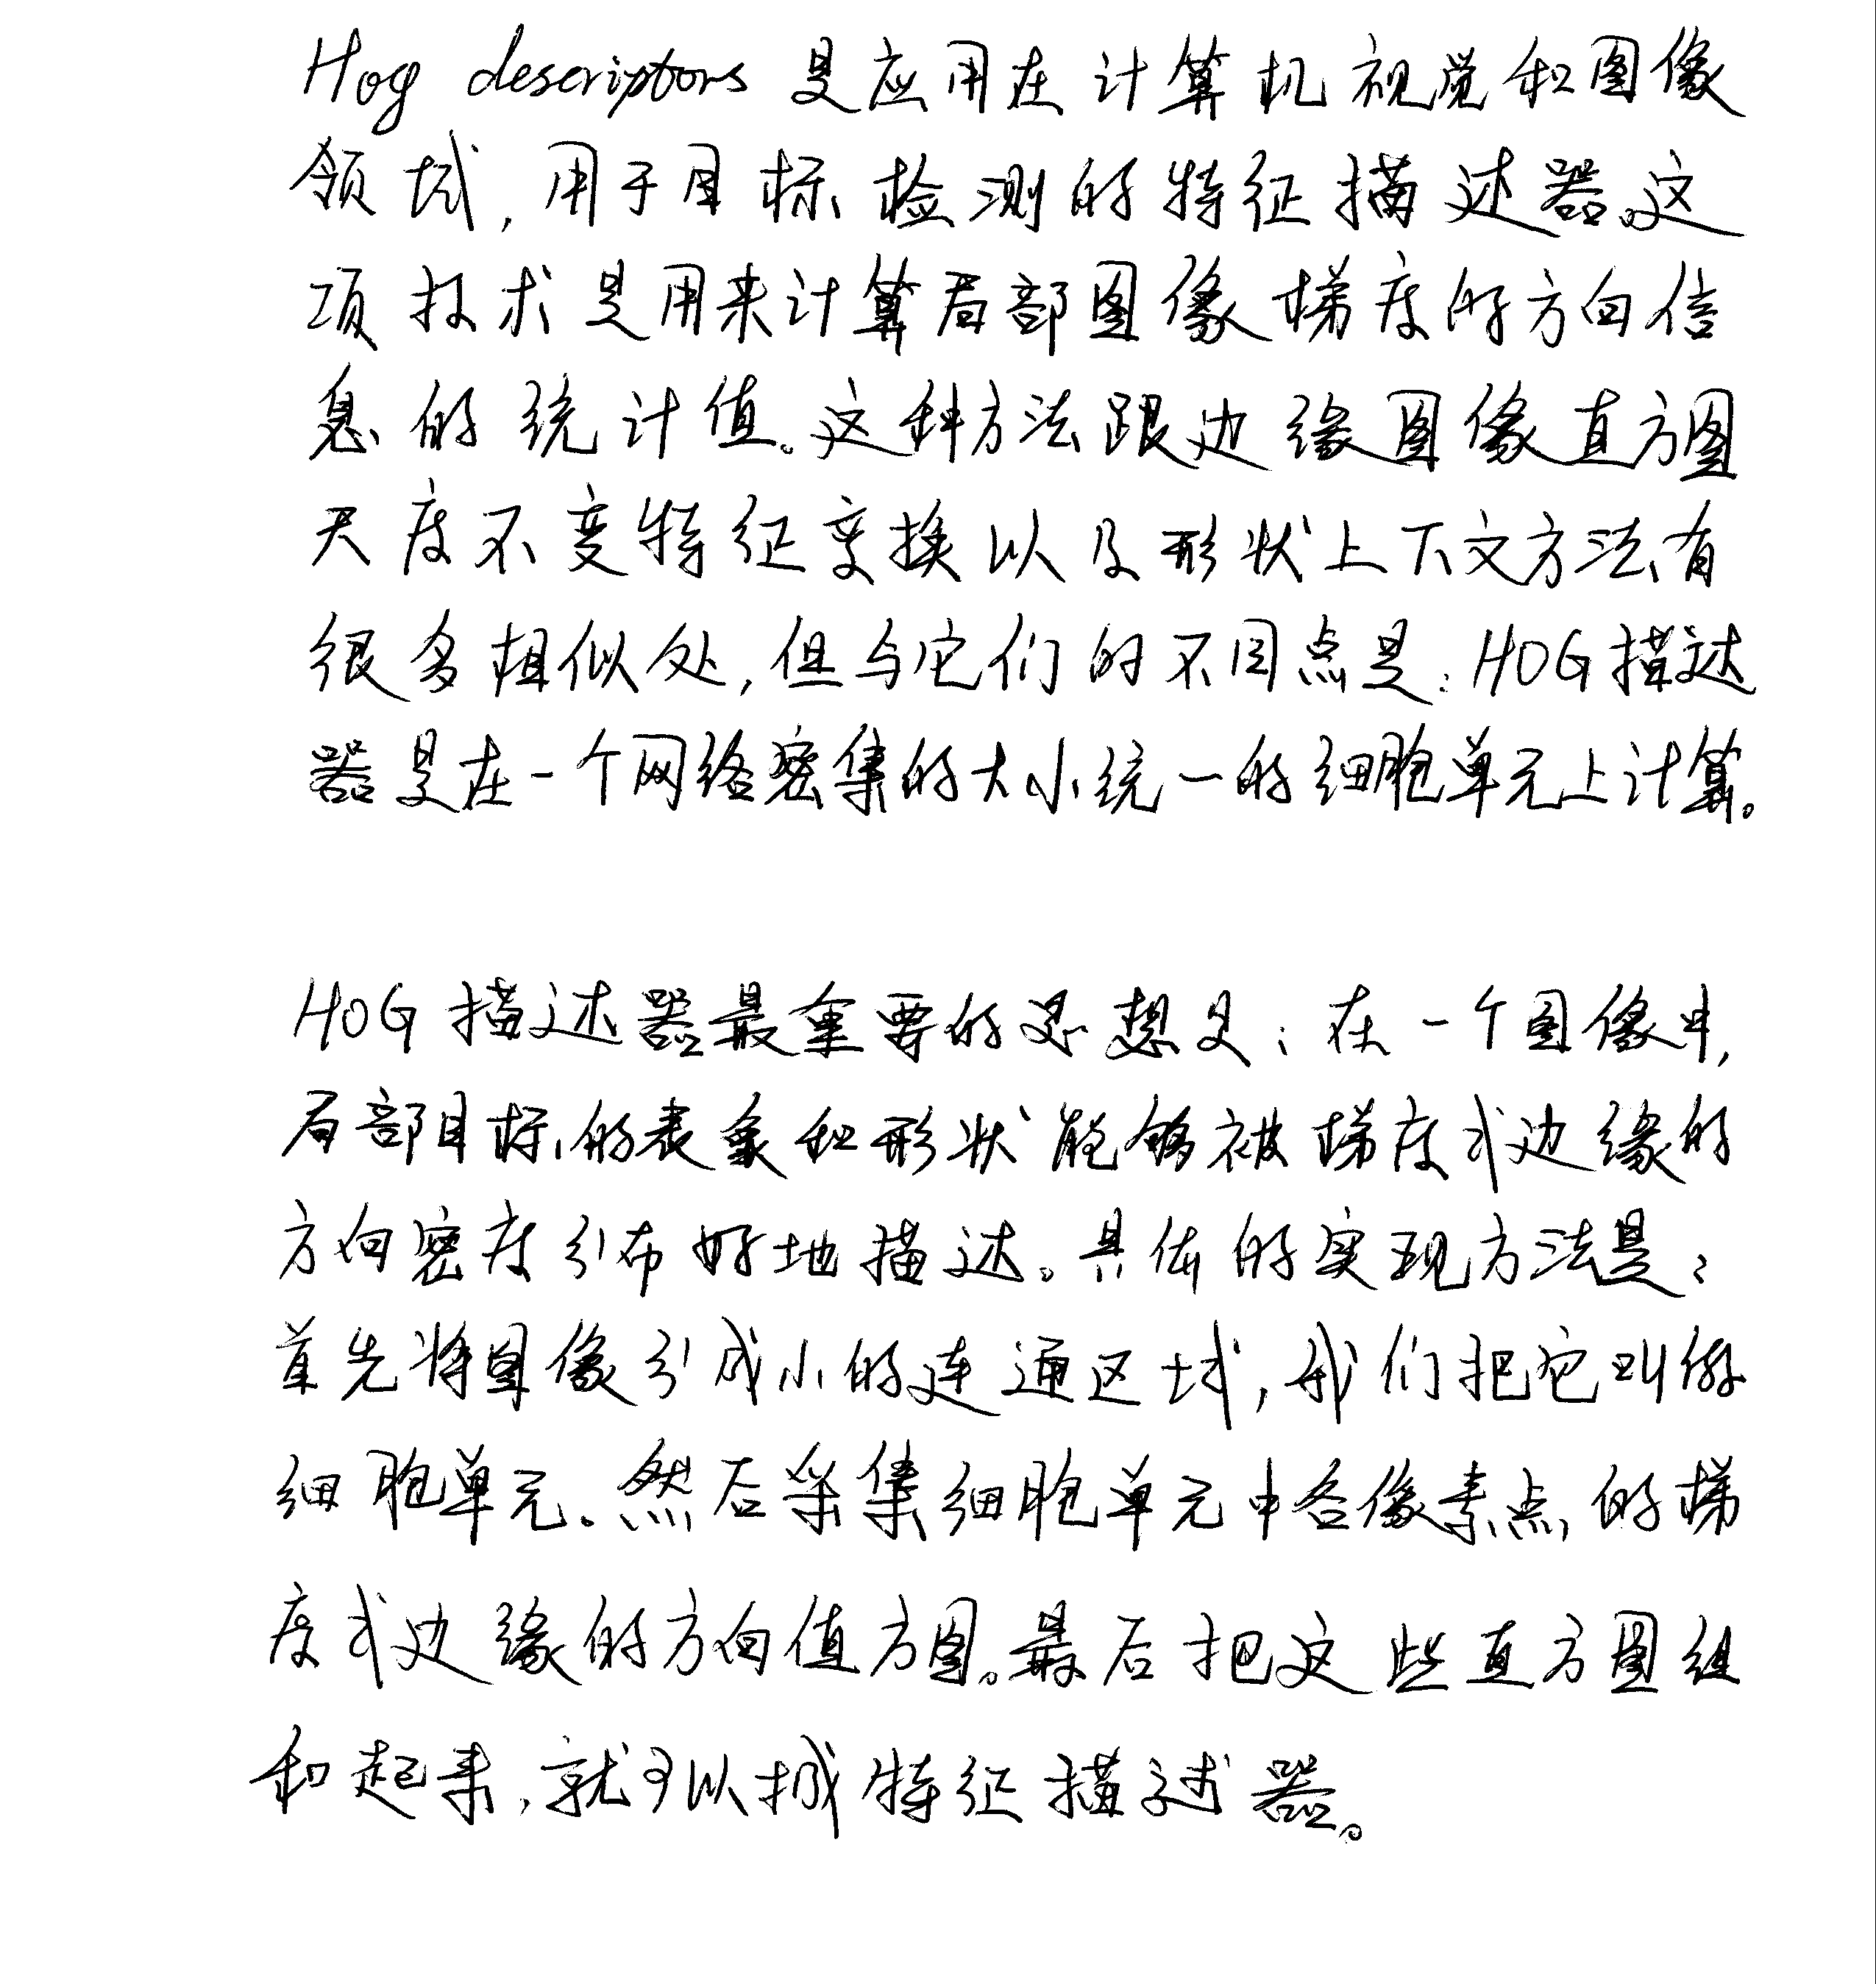 Hog descriptors 是应用在计算机视觉和图像
领域,用于目标检测的特征描述器。这
项技术是用来计算局部图像梯度的方向信
息的统计值。这种方法跟边缘图像直方图
尺度不变特征变换以及形状上下文方法有
很多相似处,但与它们的不同点是:HOG描述
器是在一个网络密集的大小统一的细胞单元上计算。
HOG描述器最重要的思想是:在一个图像中,
局部目标的表象和形状能够被梯度或边缘的
方向密度分布好地描述。具体的实现方法是:
首先将图像分成小的连通区域,我们把它叫做
细胞单元。然后采集细胞单元中各像素点的梯
度或边缘的方向值方图。最后把这些直方图组
和起来,就可以构成特征描述器。